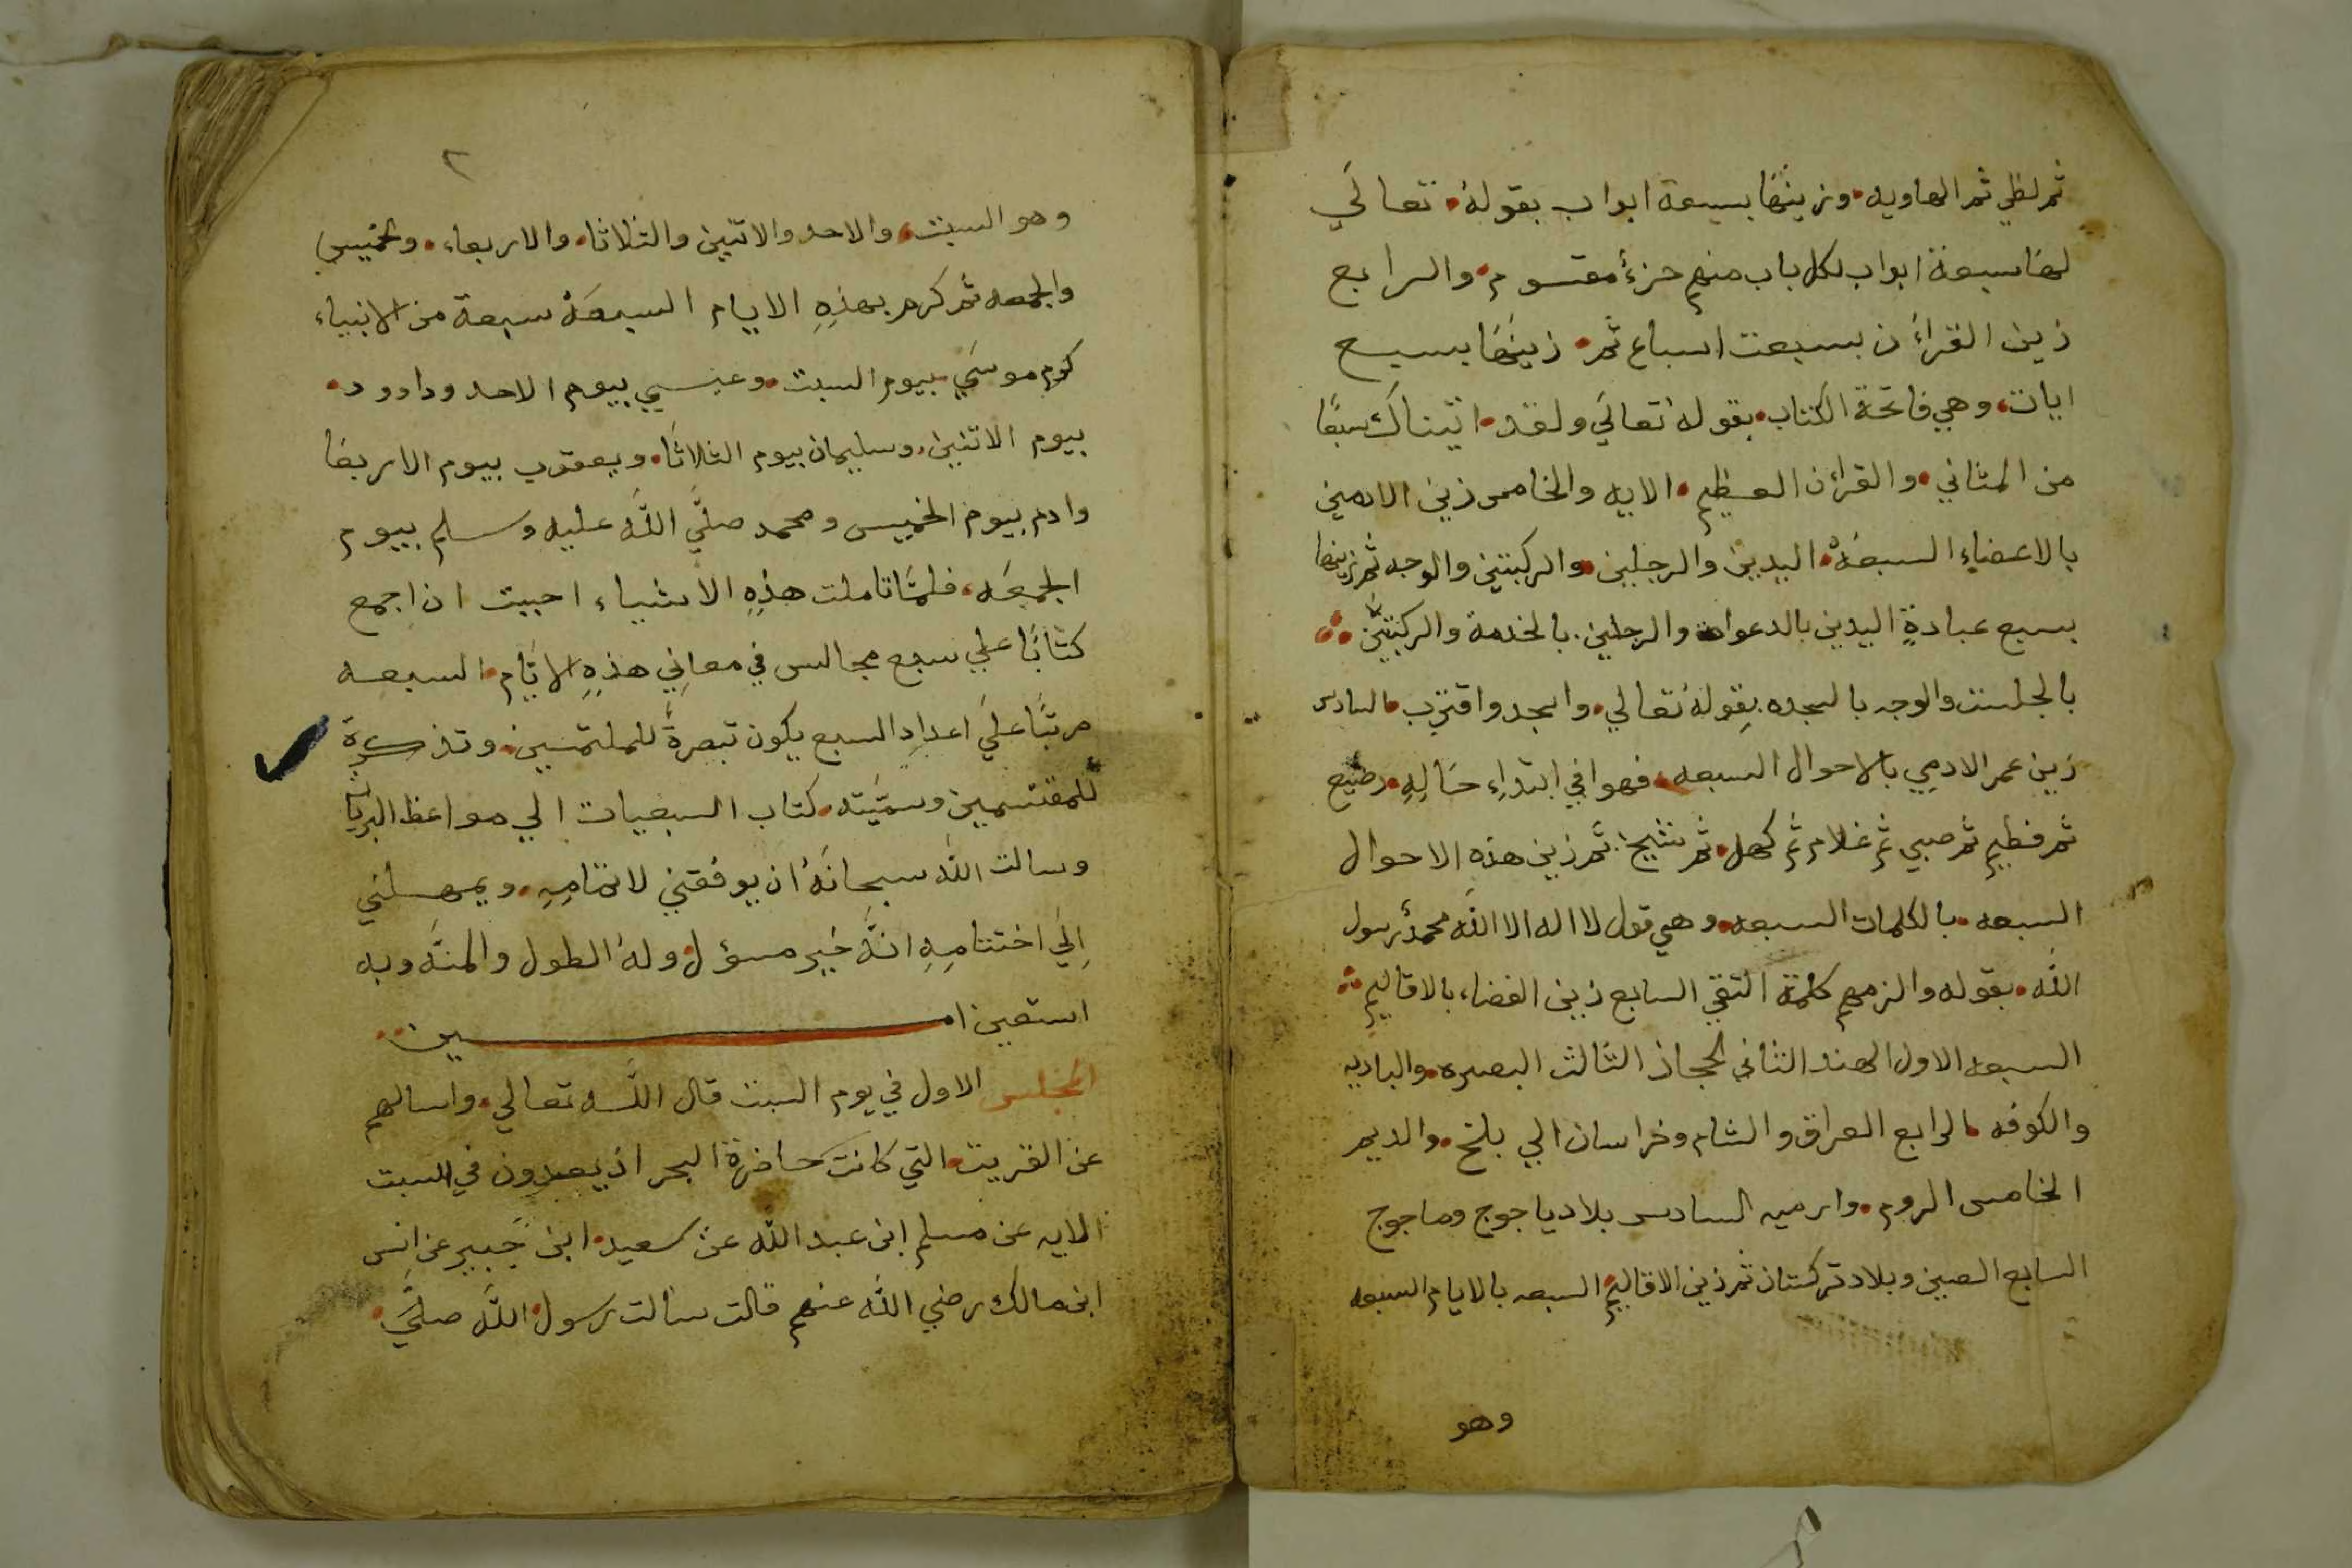 ثم لظي ثم الهاويه وزينها بسبعة ابواب بقوله تعالي
لها سبعة ابواب لكل باب منهم جزء مقسوم والرابع
زين القرآن بسبعت اسباع ثم زينها بسبع
ايات وهي فاتحة الكتاب بقوله تعالي ولقد اتيناك سبعًا
من المثاني والقرآن العظيم الايه والخامس زين الادمين
بالاعضاء السبعة اليدين والرجلين والركبتين والوجه ثم زينها
بسبع عبادةٍ اليدين بالدعوات والرجلين بالخدمة والركبتين
بالجلست والوجه بالسجده بقوله تعالي واسجد واقترب السادس
زين عمر الادمي بالاحوال السبعه فهو في ابتداءِ حَالِهِ رضيع
ثم فطيم ثم صبي ثم غلام ثم كهل ثم شيخ ثم زين هذه الاحوال
السبعه بالكلمات السبعه وهي قول لا اله الا الله محمدٌ رسول
الله بقوله والزمهم كلمة التقي السابع زين الفضاء بالاقاليم
السبعه الاول الهند الثاني الحجاز الثالث البصره والباديه
والكوفه الرابع العراق والشام وخراسان الي بلخ والديم
الخامس الروم وارميه السادس بلاد ياجوج وماجوج
السابع الصين وبلاد تركستان ثم زين الاقاليم السبعه بالايام السبعه
وهو
٢
وهو السبت والاحد والاثنين والثلاثا والاربعاء والخميس
والجمعه ثم كرم بهذِهِ الايام السبعَة سبعة من الانبياء
كرم موسَي بيوم السبت وعيسي بيوم الاحد وداوود
بيوم الاثنين وسليمان بيوم الثلاثا ويعقوب بيوم الاربعا
وادم بيوم الخميس ومحمد صلَّي اللَّه عليه وسلم بيوم
الجمعَه فلمَّا تاملت هذِهِ الاشياء احببت ان اجمع
كتابًا علي سبع مجالس في معاني هذِهِ الايَّام السبعه
مرتبًا علَي اعدادِ السبع يكون تبصرةً للملتمسين وتذكرة
للمقتسمين وسمَّيته كتاب السبعيات الي مواعظ البريات
وسالت الله سبحانَهُ ان يوفقني لاتمامِهِ ويمهلني
اِلَي اختتامِهِ انَّهُ خَير مسؤل وله الطول والمنَّه وبه
استعين امـــــــــين
المجلس الاول في يوم السبت قال اللَّه تعالي واسالهم
عن القريت التي كانت حاضرة البحر اذ يعدون في السبت
الايه عن مسلم ابن عبد الله عن سعيد ابن جُبير عن انس
ابن مالك رضي الله عنهم قالت سالت رسول اللَّه صلَّي